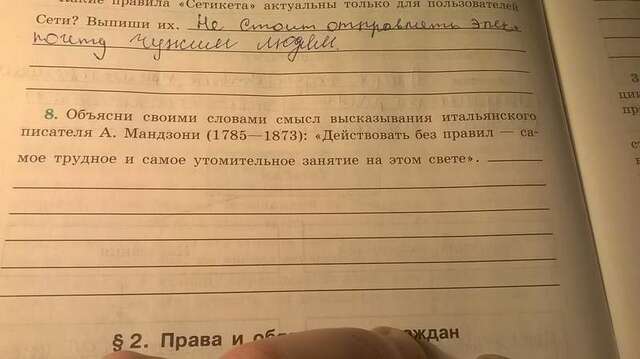 Какие правила «Сетикета» актуальны только для пользователей
Сети? Выпиши их. Не стоит отправлять элек.
почту чужим людям.
8. Объясни своими словами смысл высказывания итальянского
писателя А. Мандзони (1785—1873): «Действовать без правил — са-
мое трудное и самое утомительное занятие на этом свете».
§ 2. Права и
ждан